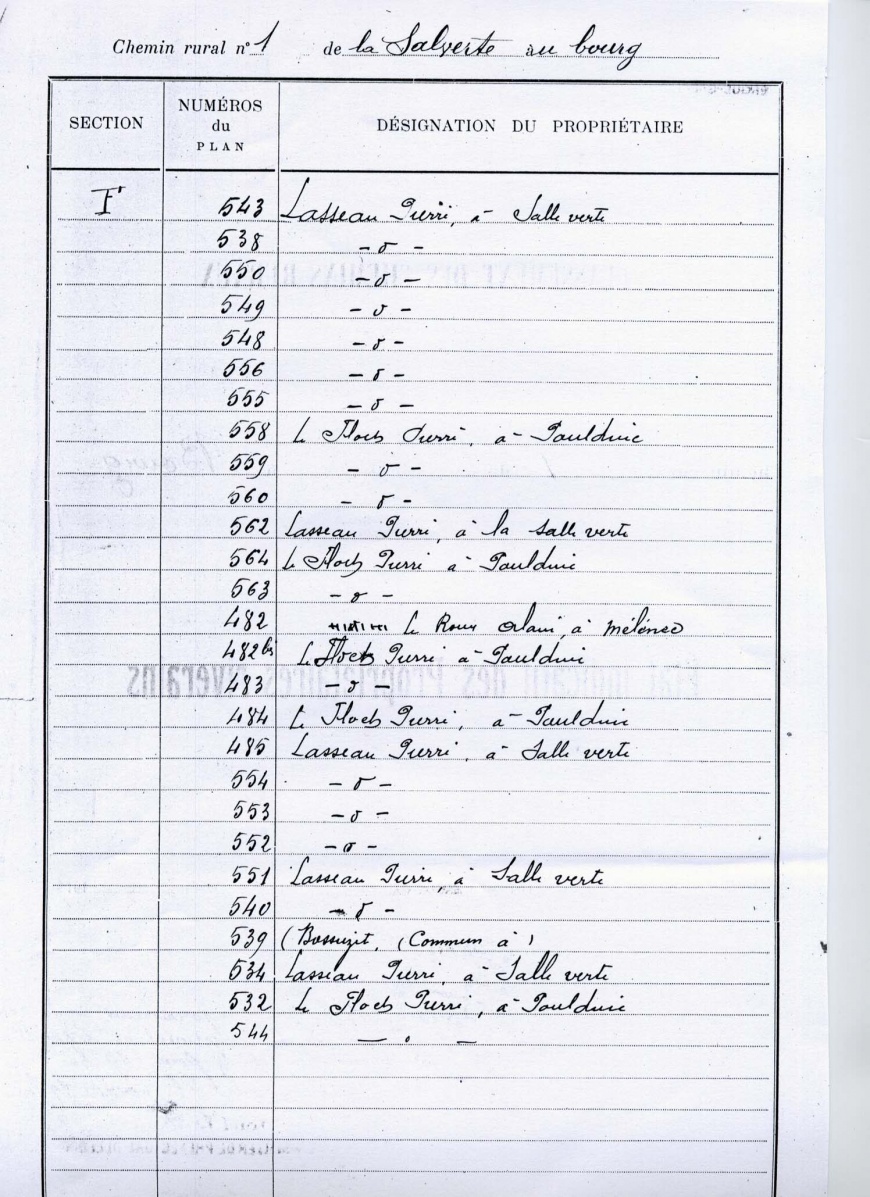 Chemin rural n° 1 de la Salverte au bourg
SECTION
NUMÉROS du PLAN
DÉSIGNATION DU PROPRIÉTAIRE
F 543 Lasseau Pierre, à Salle verte
538 - d° -
550 - d° -
549 - d° -
548 - d° -
556 - d° -
555 - d° -
558 Le Floch Pierre, à Poulduic
559 - d° -
560 - d° -
562 Lasseau Pierre, à la Salle verte
564 Le Floch Pierre à Poulduic
563 - d° -
482 Le Roux Alain, à Mélénec
482 bis Le Floch Pierre à Poulduic
483 - d° -
484 Le Floch Pierre, à Poulduic
485 Lasseau Pierre, à Salle verte
554 - d° -
553 - d° -
552 - d° -
551 Lasseau Pierre, à Salle verte
540 - d° -
539 (Commun à )
534 Lasseau Pierre, à Salle verte
532 Le Floch Pierre, à Poulduic
544 — ° —